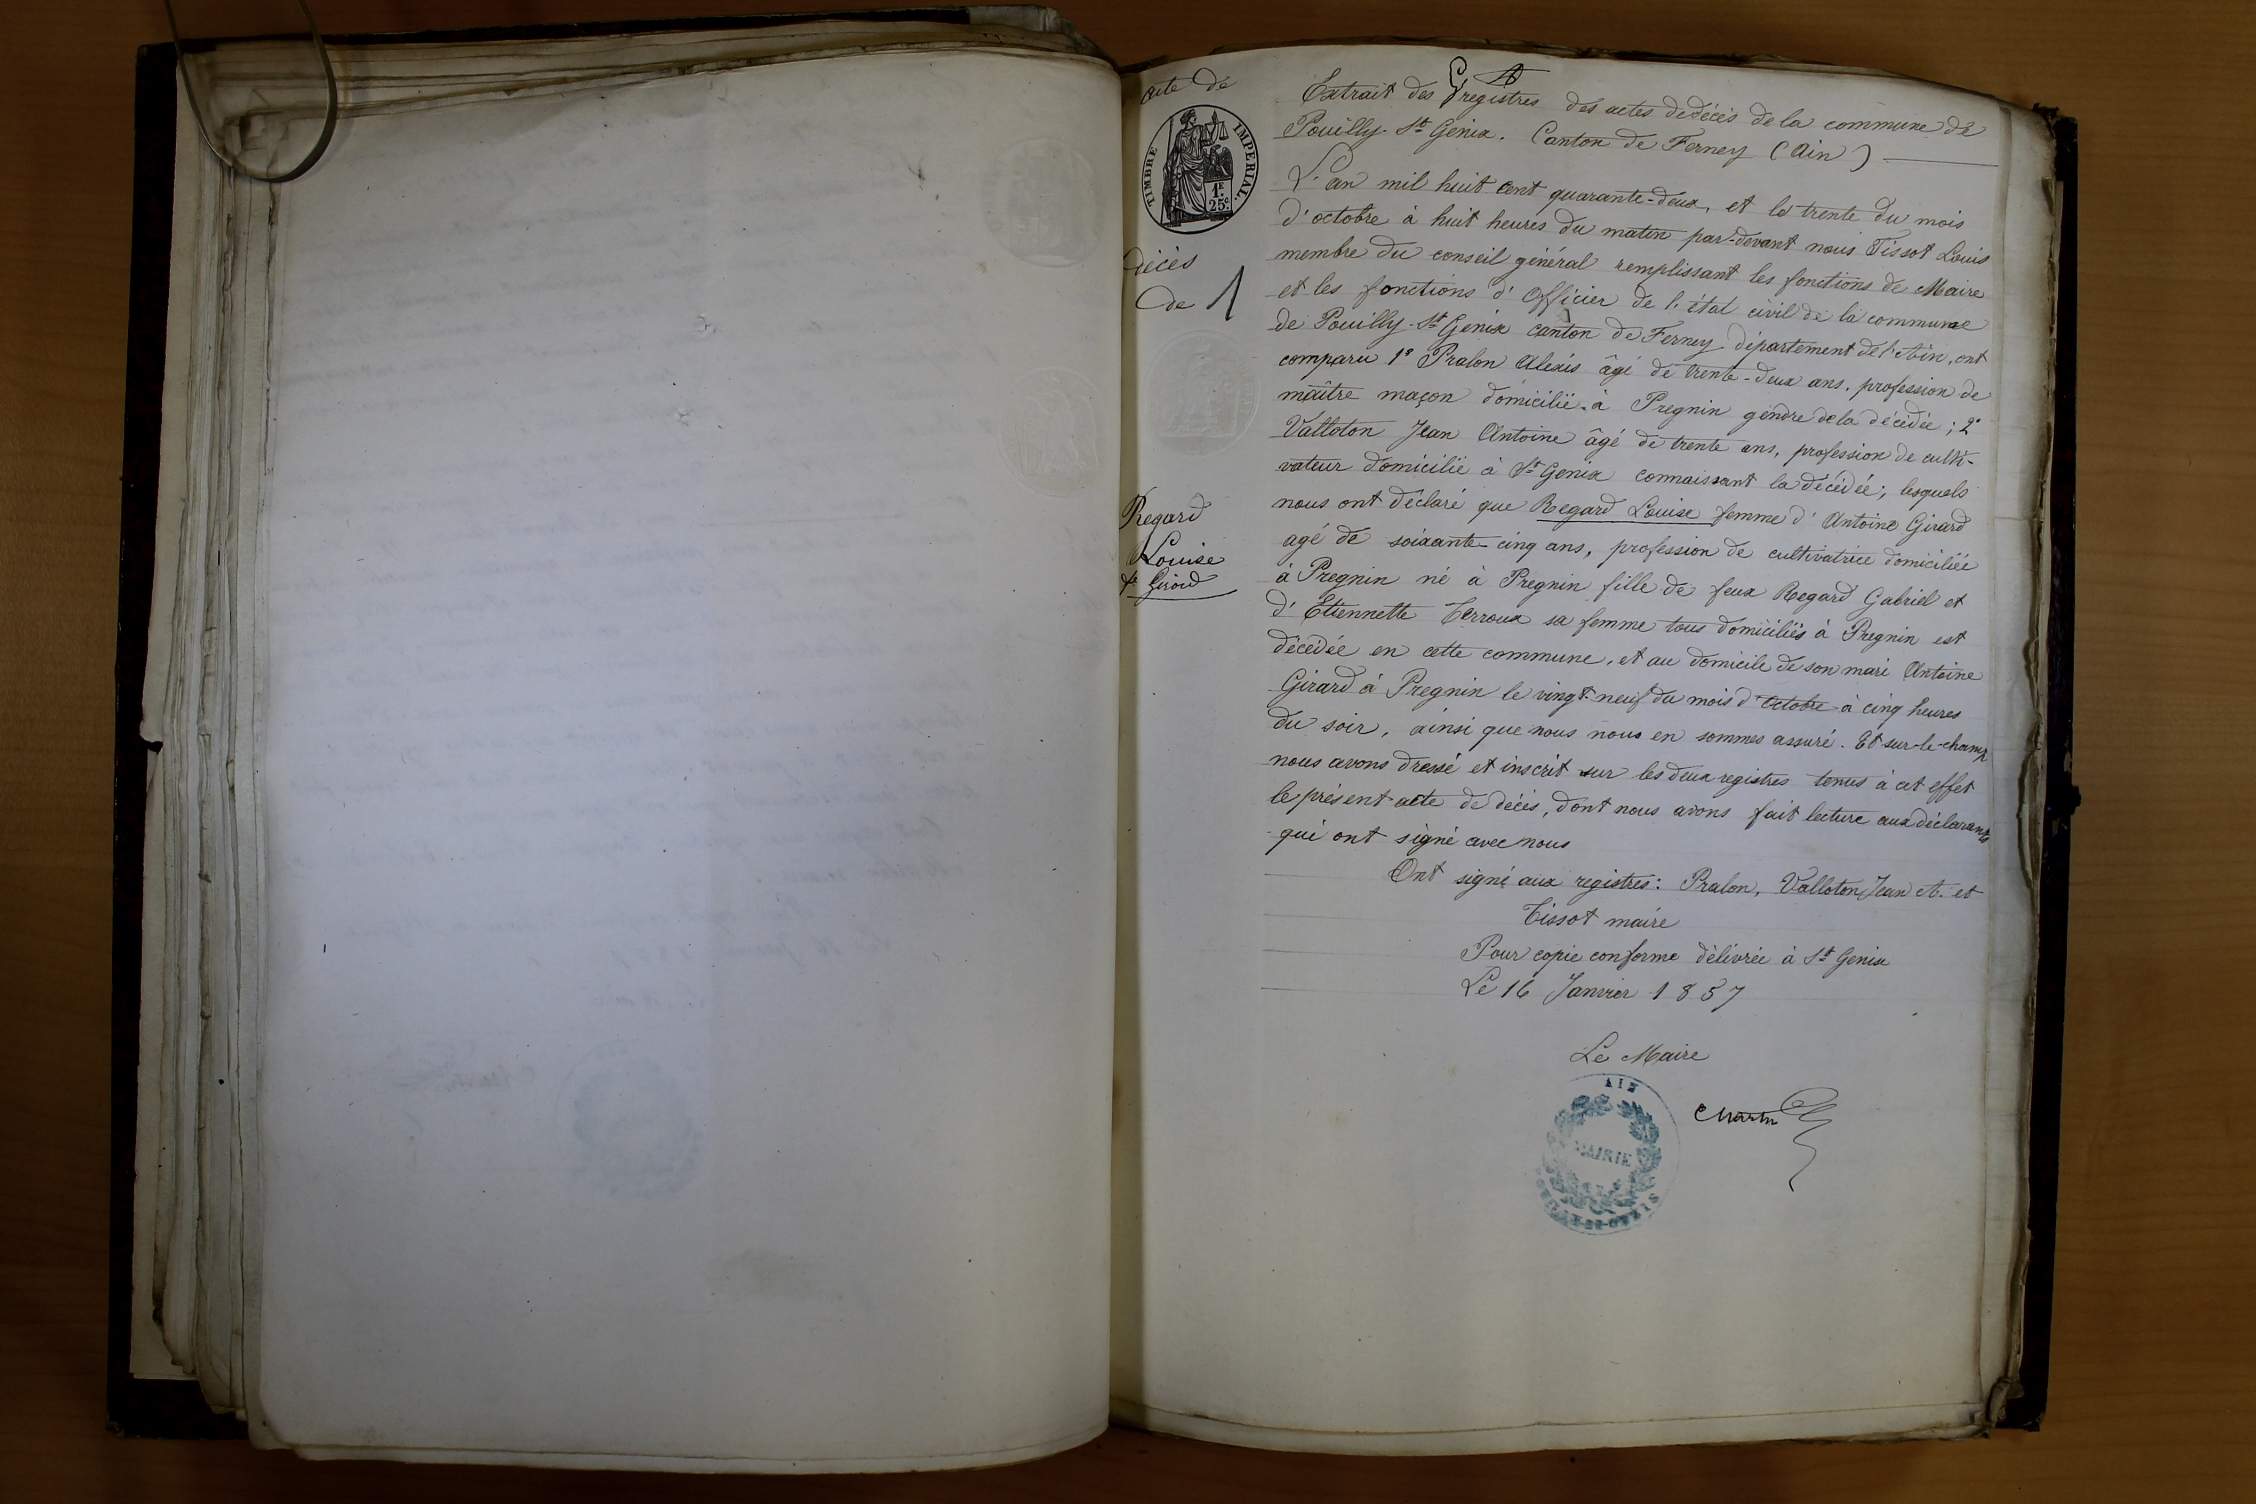 acte de
TIMBRE IMPERIAL.
1F.
25c.
décès
de 1
Regard
Louise
fe Girard
Extrait des registres des actes de décès de la commune de
Pouilly-St Genix. Canton de Ferney (Ain)
L'an mil huit cent quarante-deux, et le trente du mois
d'octobre à huit heures du matin par-devant nous Tissot Louis
membre du conseil général remplissant les fonctions de Maire
et les fonctions d'Officier de l'état civil de la commune
de Pouilly-St Genix canton de Ferney département de l'Ain, ont
comparu 1° Pralon Alexis âgé de trente-deux ans, profession de
maître maçon domicilié à Pregnin gendre de la décédée; 2°
Valloton Jean Antoine âgé de trente ans, profession de culti-
vateur domicilié à St Genix connaissant la décédée; lesquels
nous ont déclaré que Regard Louise femme d'Antoine Girard
agé de soixante-cinq ans, profession de cultivatrice domiciliée
à Pregnin né à Pregnin fille de feux Regard Gabriel et
d'Etiennette Terroux sa femme tous domiciliés à Pregnin est
décédée en cette commune, et au domicile de son mari Antoine
Girard à Pregnin le vingt-neuf du mois d'octobre à cinq heures
du soir, ainsi que nous nous en sommes assuré. Et sur-le-champ
nous avons dressé et inscrit sur les deux registres tenus à cet effet
le présent acte de décès, dont nous avons fait lecture aux déclarants
qui ont signé avec nous
Ont signé aux registres: Pralon, Valloton Jean A. et
Tissot maire
Pour copie conforme délivrée à St Genix
Le 16 Janvier 1857
Le Maire
AIN
MAIRIE